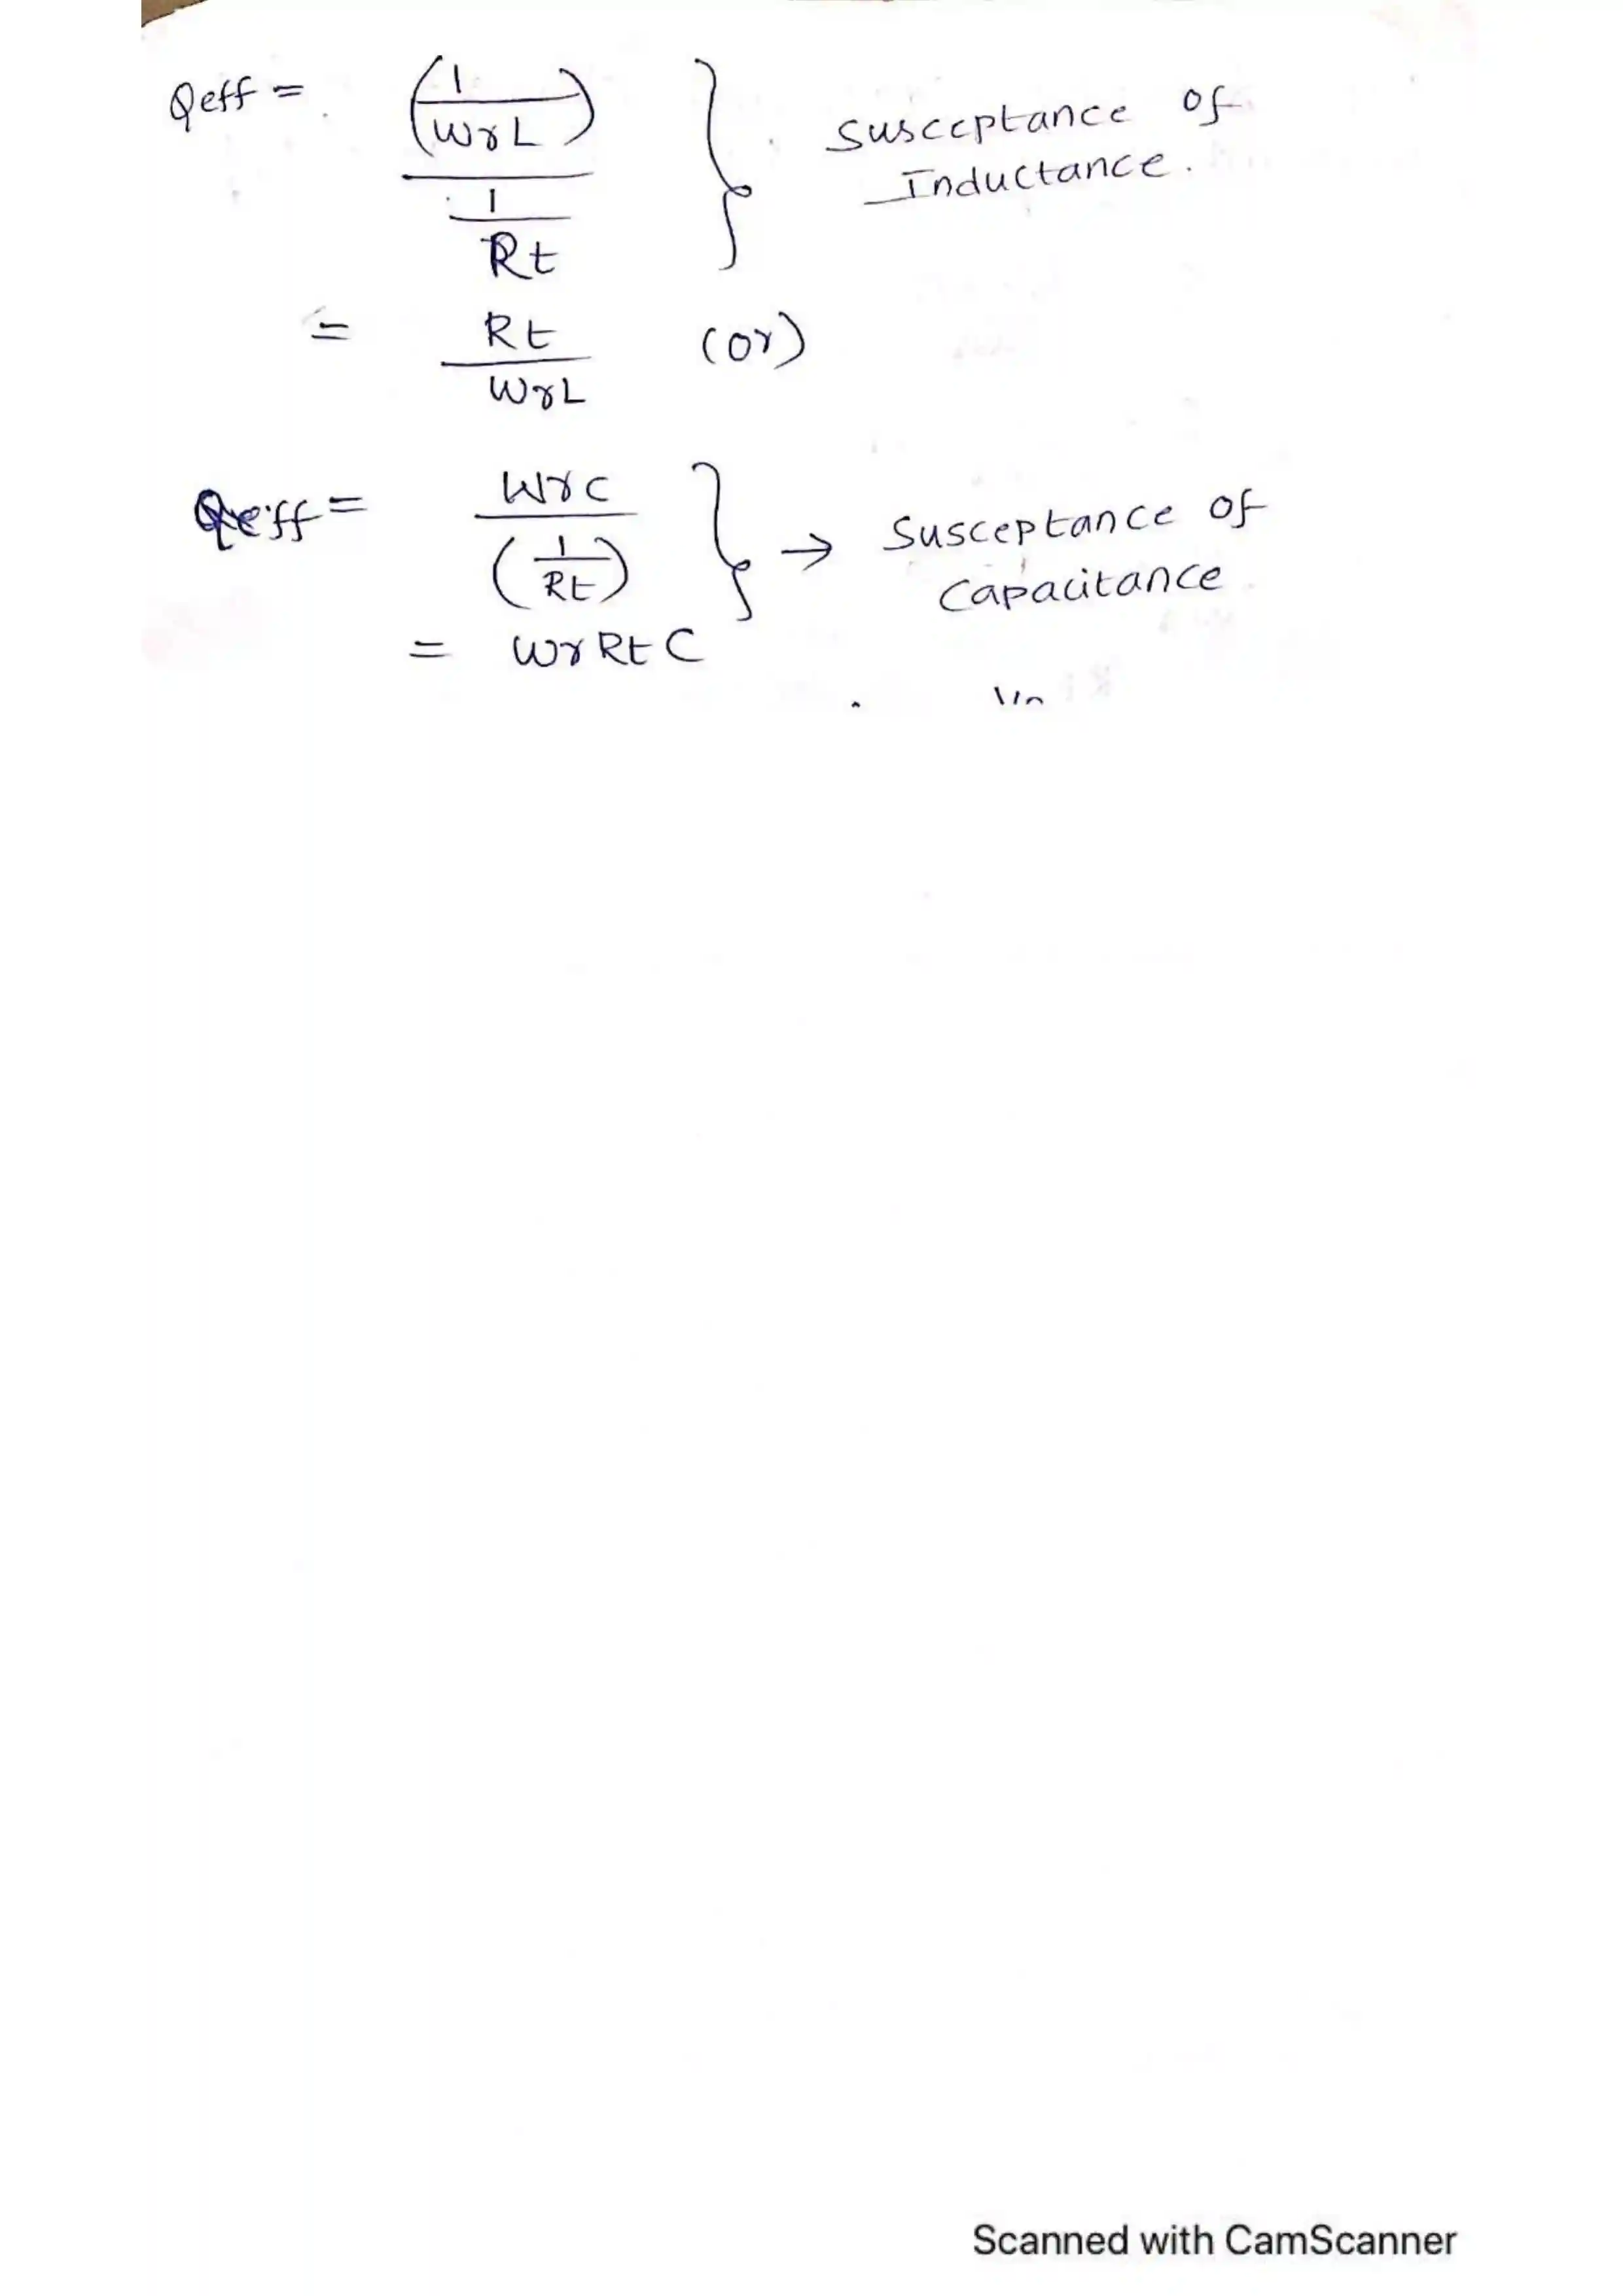 Qeff = (1/ωrL) / (1/Rt) } Susceptance of
Inductance.
= Rt/ωrL (or)
Qeff = ωrC / (1/Rt) } → Susceptance of
Capacitance
= ωr Rt C
Scanned with CamScanner